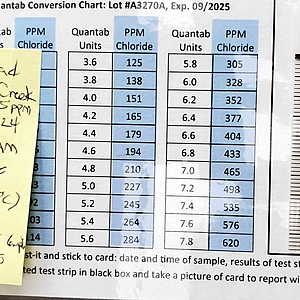 antab Conversion Chart: Lot #A3270A, Exp. 09/2025
ntab PPM Quantab PPM Quantab PPM
its Chloride Units Chloride Units Chloride
3.6 125 5.8 305
3.8 138 6.0 328
4.0 151 6.2 352
4.2 165 6.4 377
4.4 179 6.6 404
4.6 194 6.8 433
4.8 210 7.0 465
5.0 227 7.2 498
5.2 245 7.4 535
03 5.4 264 7.6 576
114 5.6 284 7.8 620
Creek
ppm
24
AM
°C)
st-it and stick to card: date and time of sample, results of test st
ted test strip in black box and take a picture of card to report wi